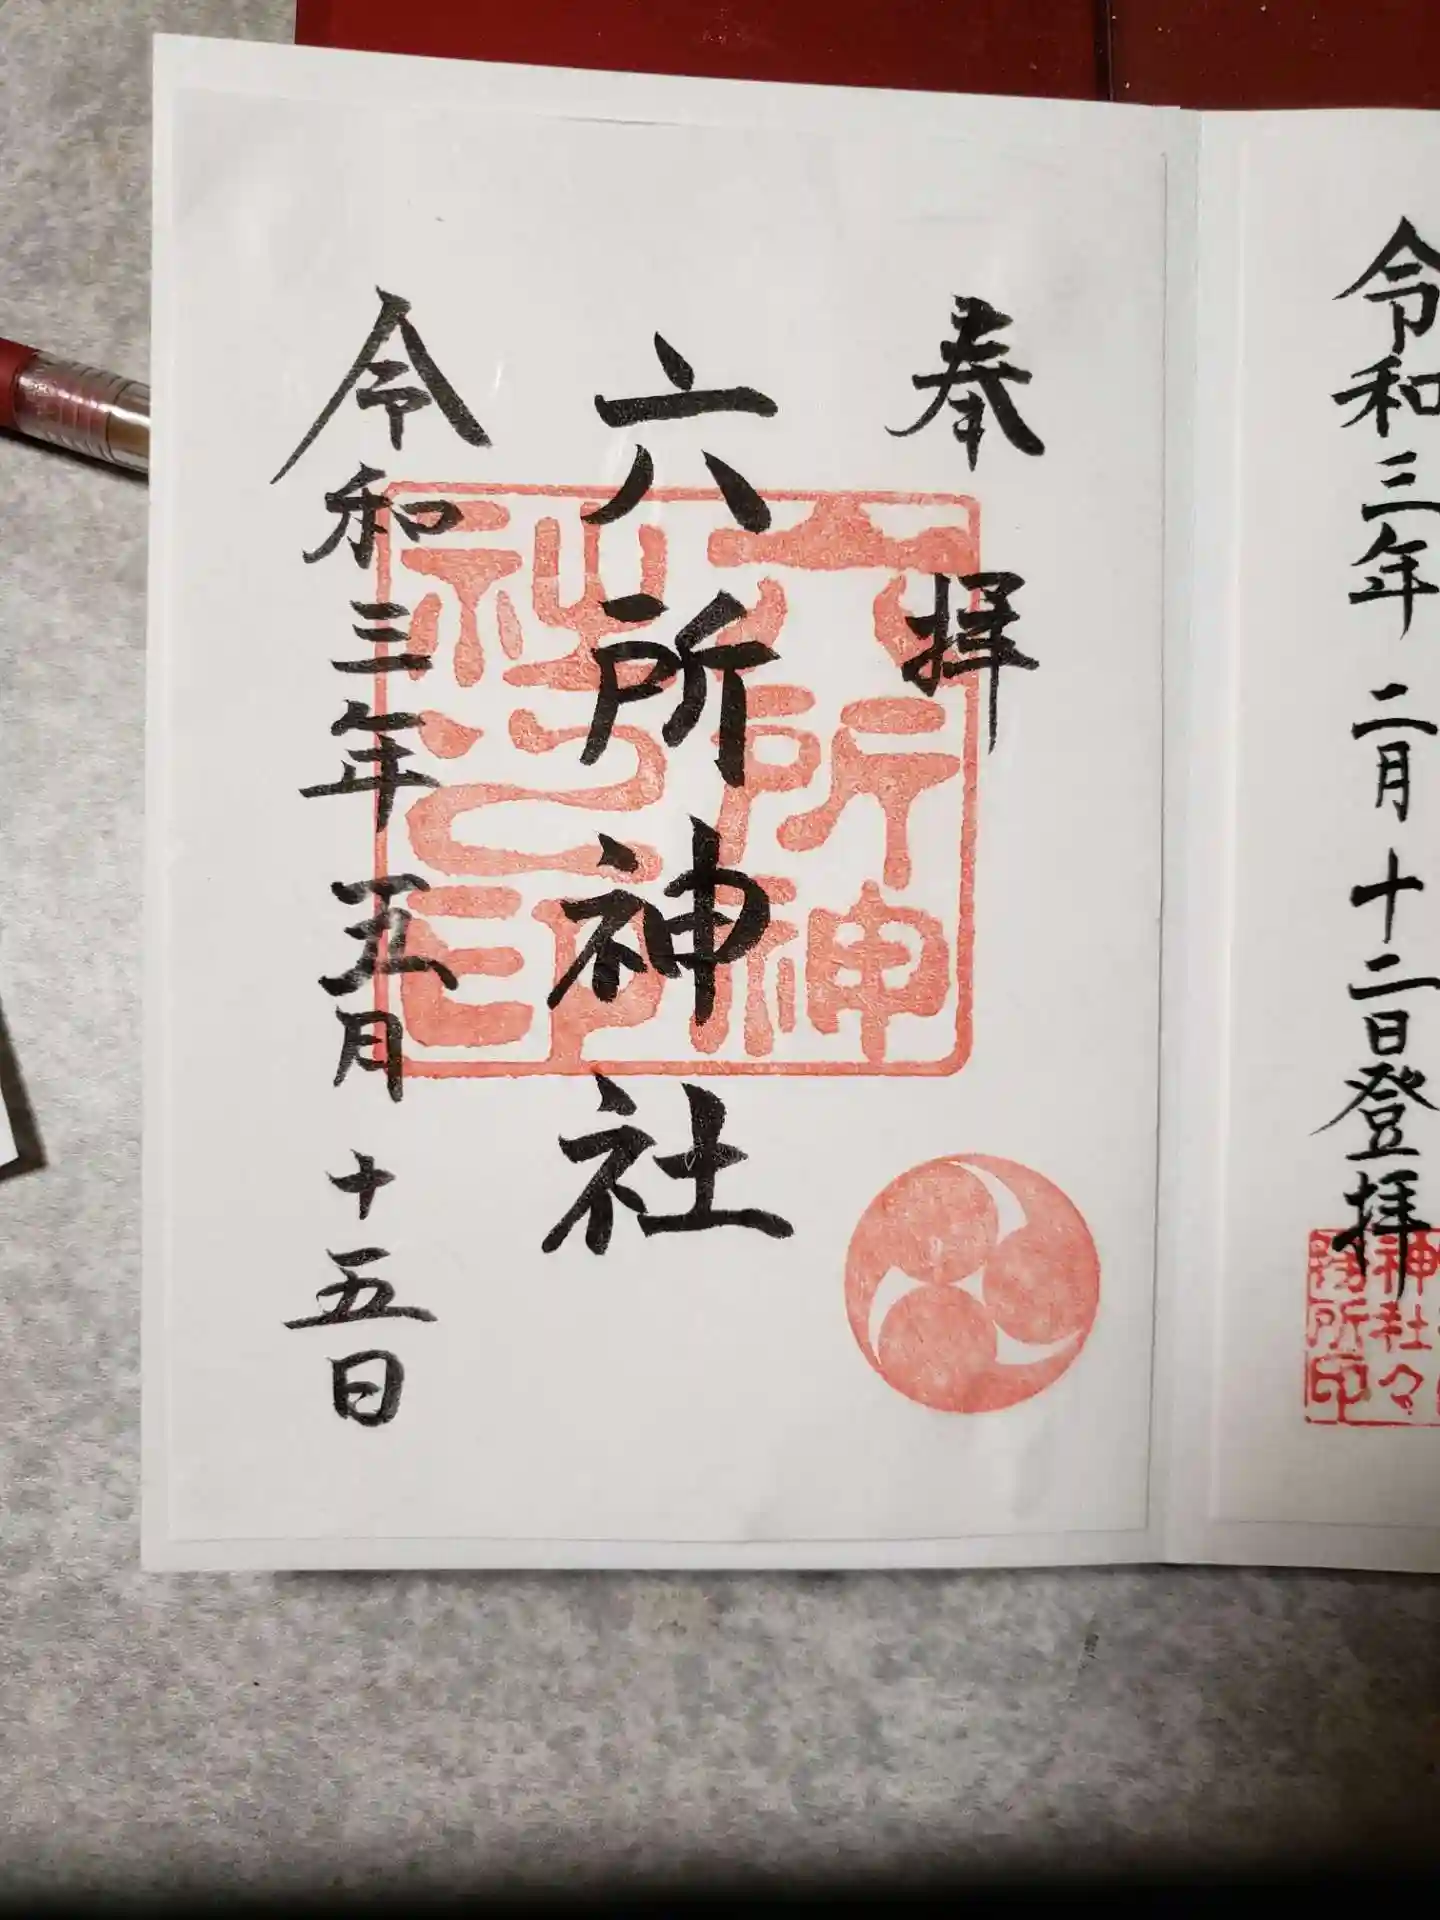 令和三年 二月 十二日登拝
神社々
務所印
奉拝
六所神社
六所神
社之印
令和三年五月十五日